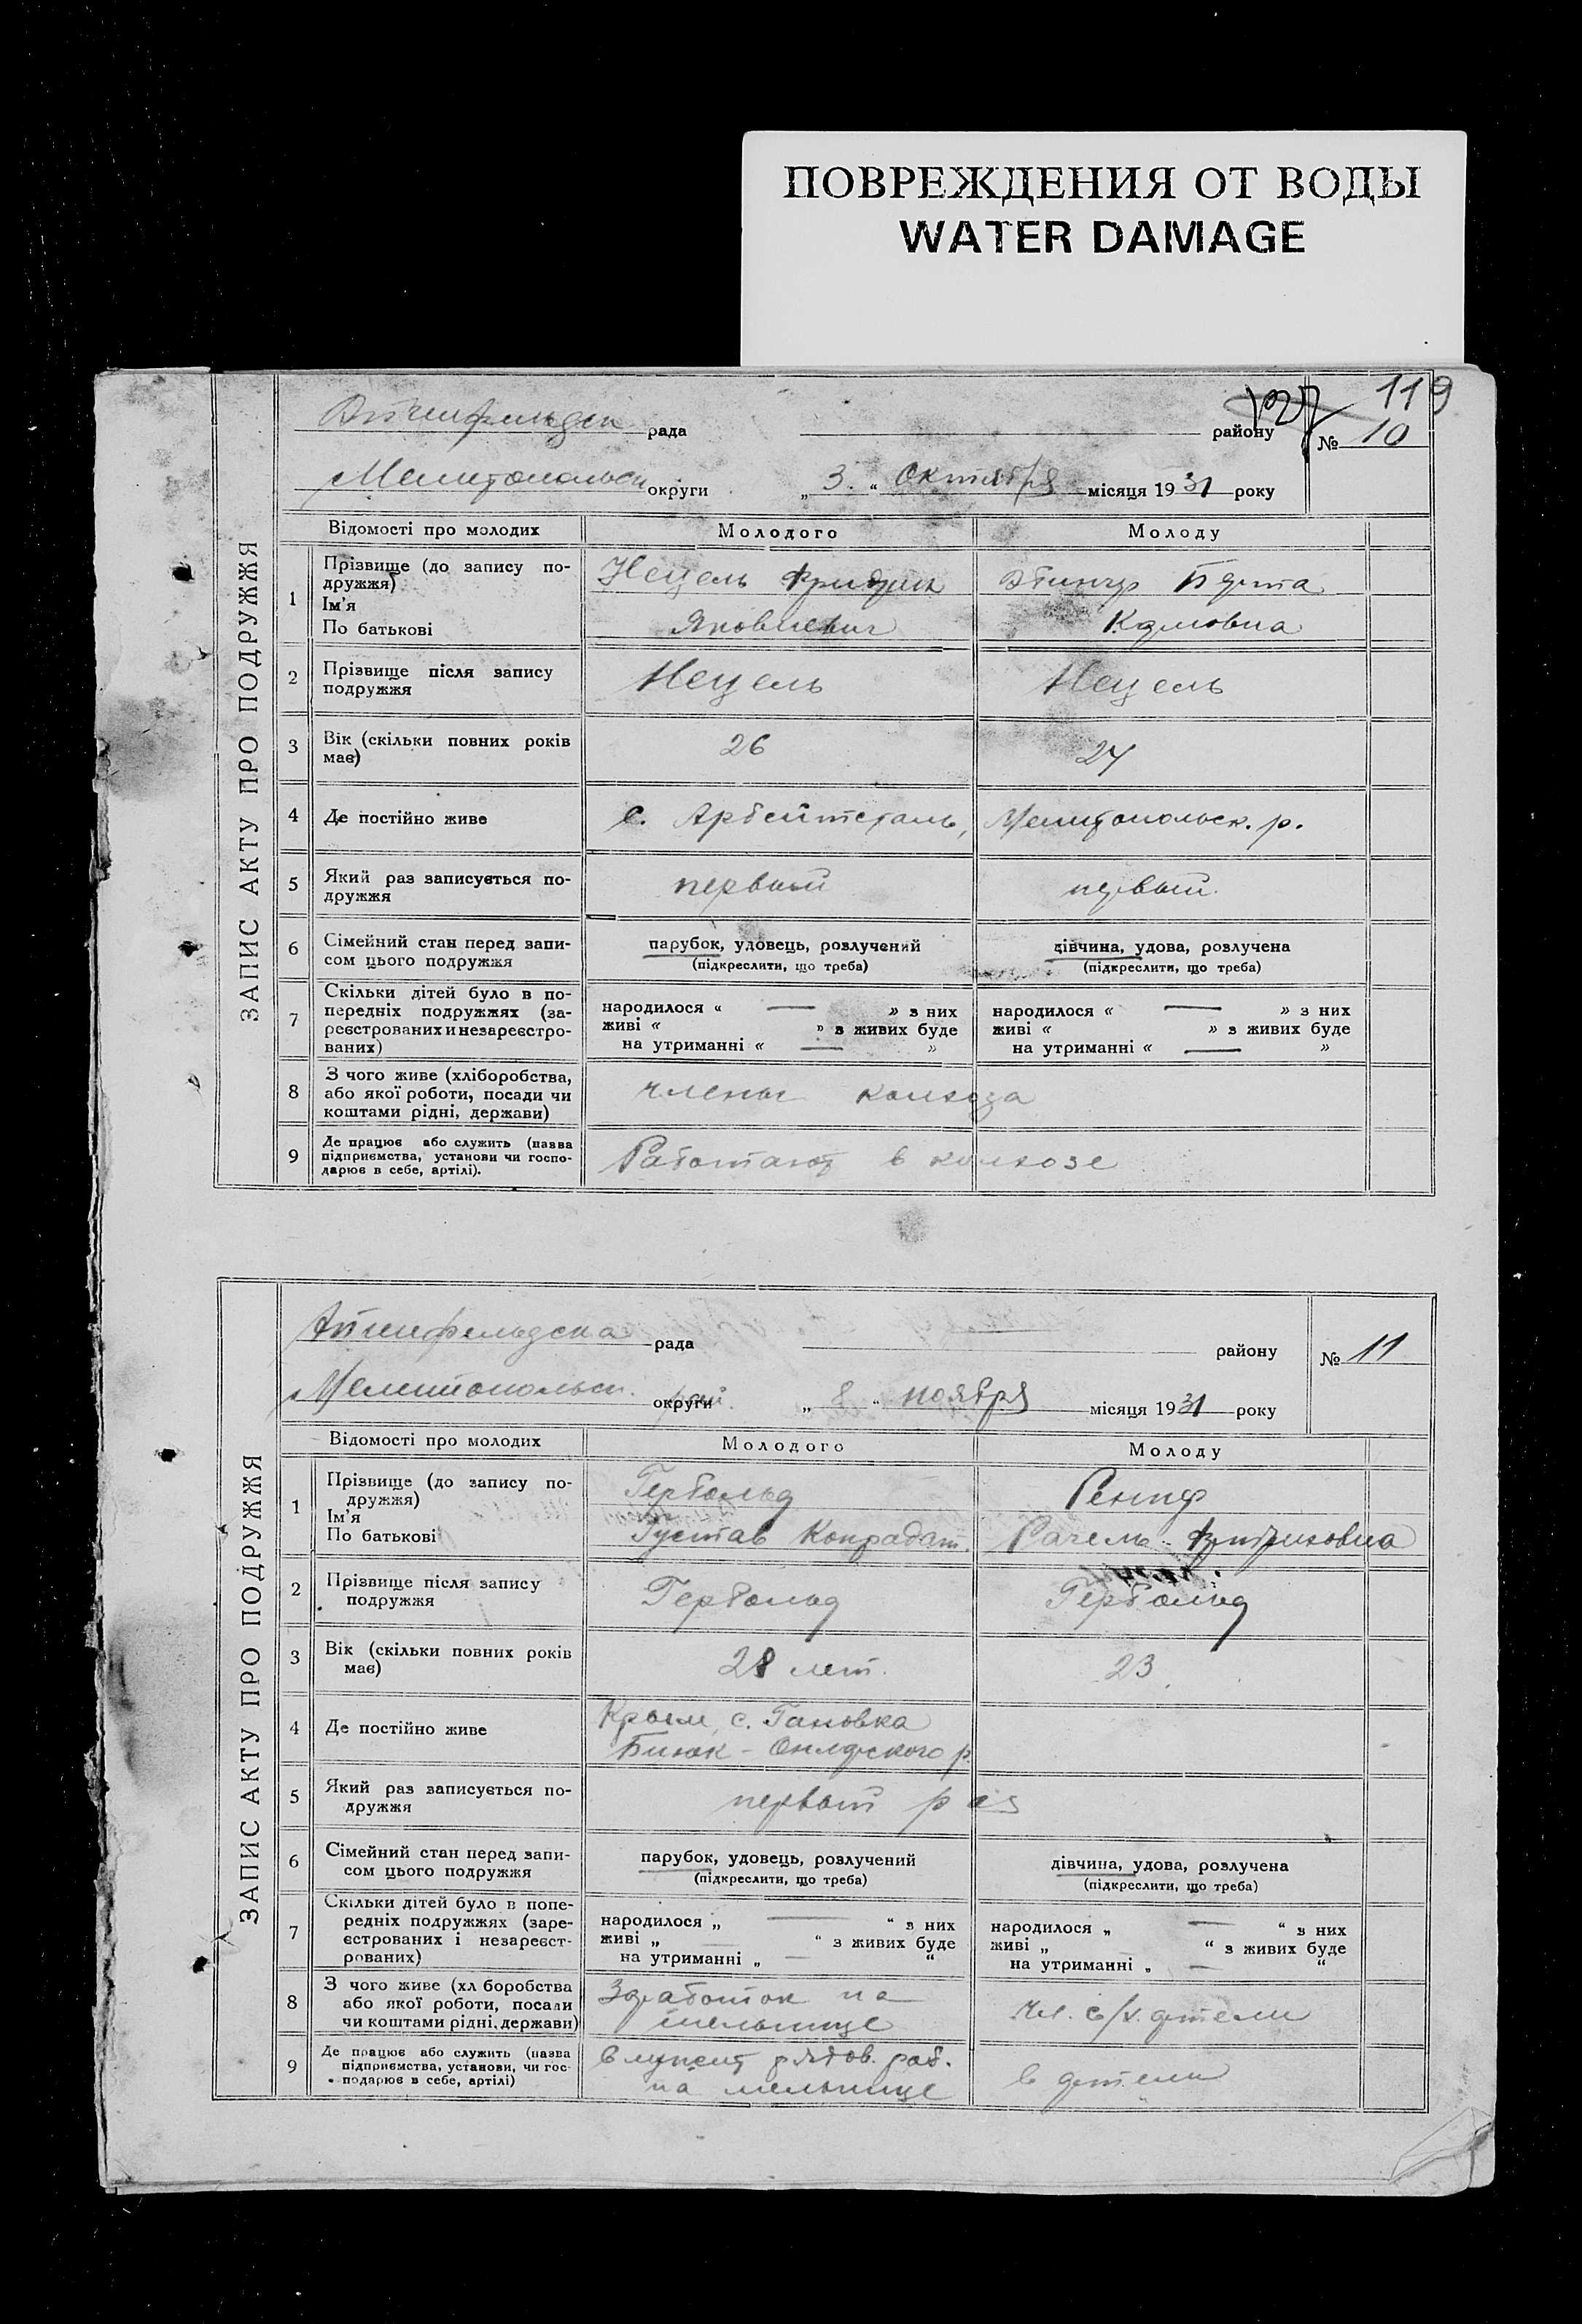 ПОВРЕЖДЕНИЯ ОТ ВОДЫ
WATER DAMAGE
119
рада району № 10
Мелитопольск округи „ 3. “ Октября місяця 1931 року
ЗАПИС АКТУ ПРО ПОДРУЖЖЯ
Відомості про молодих Молодого Молоду
1 Прізвище (до запису по-
дружжя)
Ім'я
По батькові
Нецель Фридрих
Яковлевич
Берта
Карловна
2 Прізвище після запису
подружжя
Нецель Нецель
3 Вік (скільки повних років
має)
26 24
4 Де постійно живе с. Арбейтсталь, Мелитопольск. р.
5 Який раз записується по-
дружжя
первый первый.
6 Сімейний стан перед запи-
сом цього подружжя
парубок, удовець, розлучений
(підкреслити, що треба)
дівчина, удова, розлучена
(підкреслити, що треба)
7 Скільки дітей було в по-
передніх подружжях (за-
реєстрованих и незареєстро-
ваних)
народилося “ — » з них
живі “ » з живих буде
на утриманні “ — »
народилося “ — » з них
живі “ » з живих буде
на утриманні “ — »
8 З чого живе (хліборобства,
або якої роботи, посади чи
коштами рідні, держави)
члены колхоза
9 Де працює або служить (назва
підприємства, установи чи госпо-
дарює в себе, артілі).
Работают в колхозе
рада району № 11
Мелитопольск. округи рай. „ 8 “ ноября місяця 1931 року
ЗАПИС АКТУ ПРО ПОДРУЖЖЯ
Відомості про молодих Молодого Молоду
1 Прізвище (до запису по-
дружжя)
Ім'я
По батькові
Гербольд
Густав Конрадат.
Рачель Фридриховна
2 Прізвище після запису
подружжя
Гербольд Гербольд
3 Вік (скільки повних років
має)
28 лет. 23
4 Де постійно живе
Крым, с. Гановка
Биюк-Онларского р
5 Який раз записується по-
дружжя
первый раз
6 Сімейний стан перед запи-
сом цього подружжя
парубок, удовець, розлучений
(підкреслити, що треба)
дівчина, удова, розлучена
(підкреслити, що треба)
7 Скільки дітей було в попе-
редніх подружжях (заре-
єстрованих і незареєст-
рованих)
народилося „ — “ з них
живі „ — “ з живих буде
на утриманні „ — “
народилося „ — “ з них
живі „ “ з живих буде
на утриманні „ — “
8 З чого живе (хл боробства
або якої роботи, посади
чи коштами рідні, держави)
Заработок на
мельнице
Чл. с/х. артели
9 Де працює або служить (назва
підприємства, установи, чи гос-
подарює в себе, артілі)
рядов. раб.
на мельнице
в артели